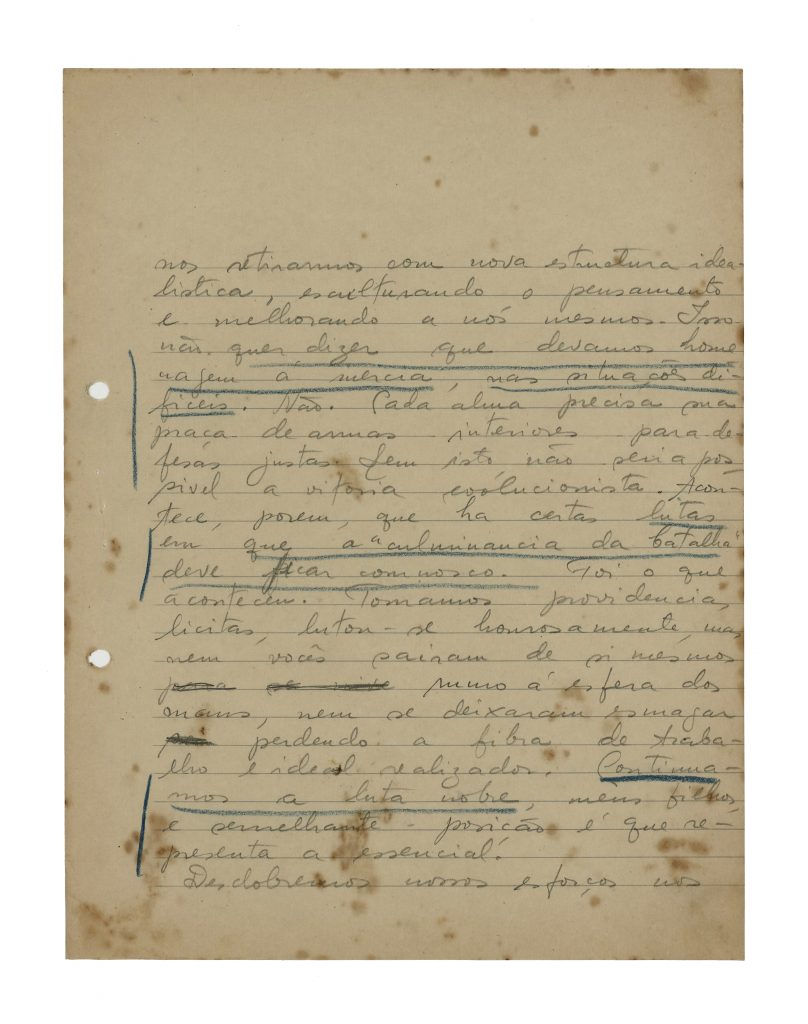 nos retirarmos com nova estructura idea-
listica, esculturando o pensamento
e melhorando a nós mesmos. Isso
não quer dizer que devamos home
nagem á inercia, nas situações di-
ficeis. Não. Cada alma precisa sua
praça de armas interiores para de-
fesas justas. Sem isto, não seria pos-
sivel a vitoria evolucionista. Acon-
tece, porem, que ha certas lutas
em que a "culminancia da batalha"
deve ficar comnosco. Foi o que
aconteceu. Tomamos providencia,
licitas, lutou-se honrosamente, mas
nem vocês sairam de si mesmos
rumo á esfera dos
maus, nem se deixaram esmagar
perdendo a fibra de traba-
lho e ideal realizador. Continua-
mos a luta nobre, meus filhos,
e semelhante posição é que re-
presenta a essencial.
Desdobremos nossos esforços nos